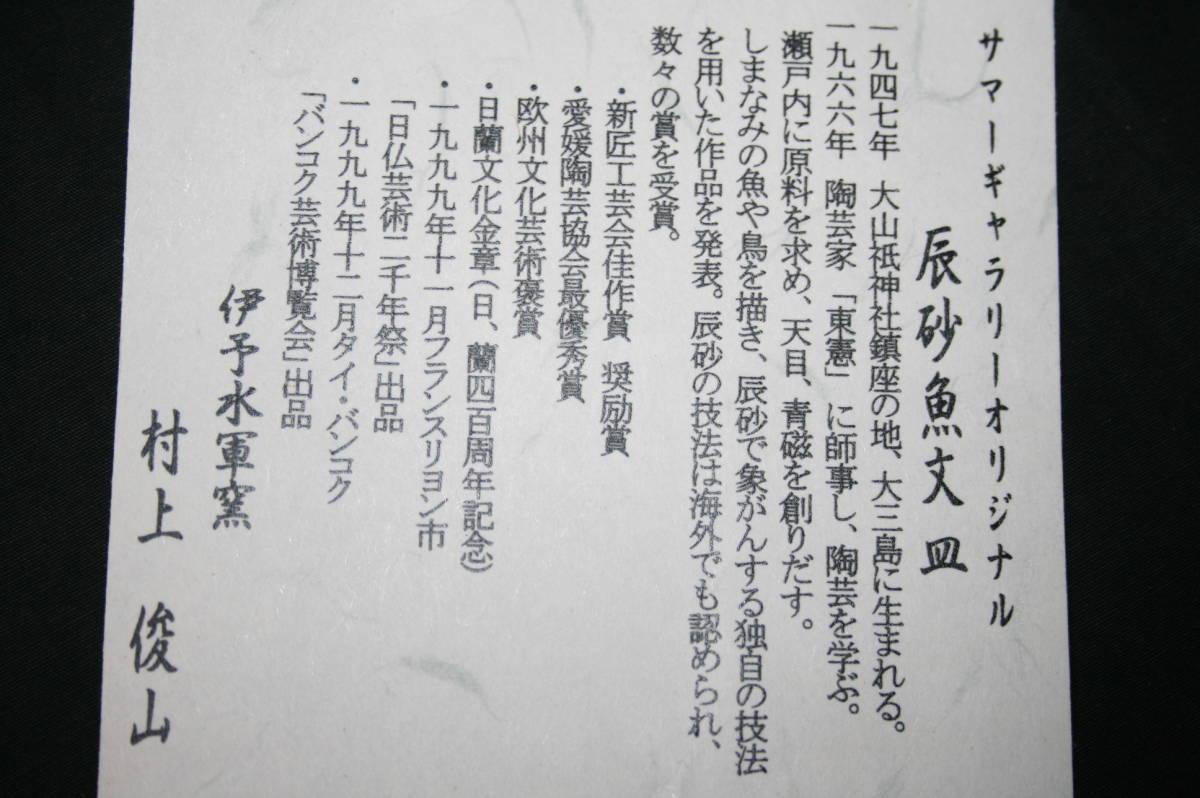 サマーギャラリーオリジナル
辰砂魚文皿
一九四七年 大山祇神社鎮座の地、大三島に生まれる。
一九六六年 陶芸家「東憲」に師事し、陶芸を学ぶ。
瀬戸内に原料を求め、天目、青磁を創りだす。
しまなみの魚や鳥を描き、辰砂で象がんする独自の技法
を用いた作品を発表。辰砂の技法は海外でも認められ、
数々の賞を受賞。
・新匠工芸会佳作賞 奨励賞
・愛媛陶芸協会最優秀賞
・欧州文化芸術褒賞
・日蘭文化金章(日、蘭四百周年記念)
・一九九九年十一月フランスリヨン市
「日仏芸術二千年祭」出品
・一九九九年十二月タイ・バンコク
「バンコク芸術博覧会」出品
伊予水軍窯
村上 俊山